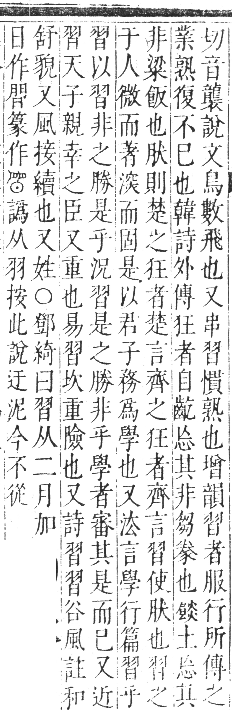 切音襲說文鳥數飛也又串習慣熟也增韻習者服行所傳之
業熟復不已也韓詩外傳狂者自齕忘其非芻豢也餤土忘其
非粱飯也肰則楚之狂者楚言齊之狂者齊言習使肰也習之
于人微而著深而固是以君子務爲學也又法言學行篇習乎
習以習非之勝是乎況習是之勝非乎學者審其是而已又近
習天子親幸之臣又重也易習坎重險也又詩習習谷風註和
舒貌又風接續也又姓○鄧綺曰習从二月加
日作習篆作習譌从羽按此說迂泥今不從